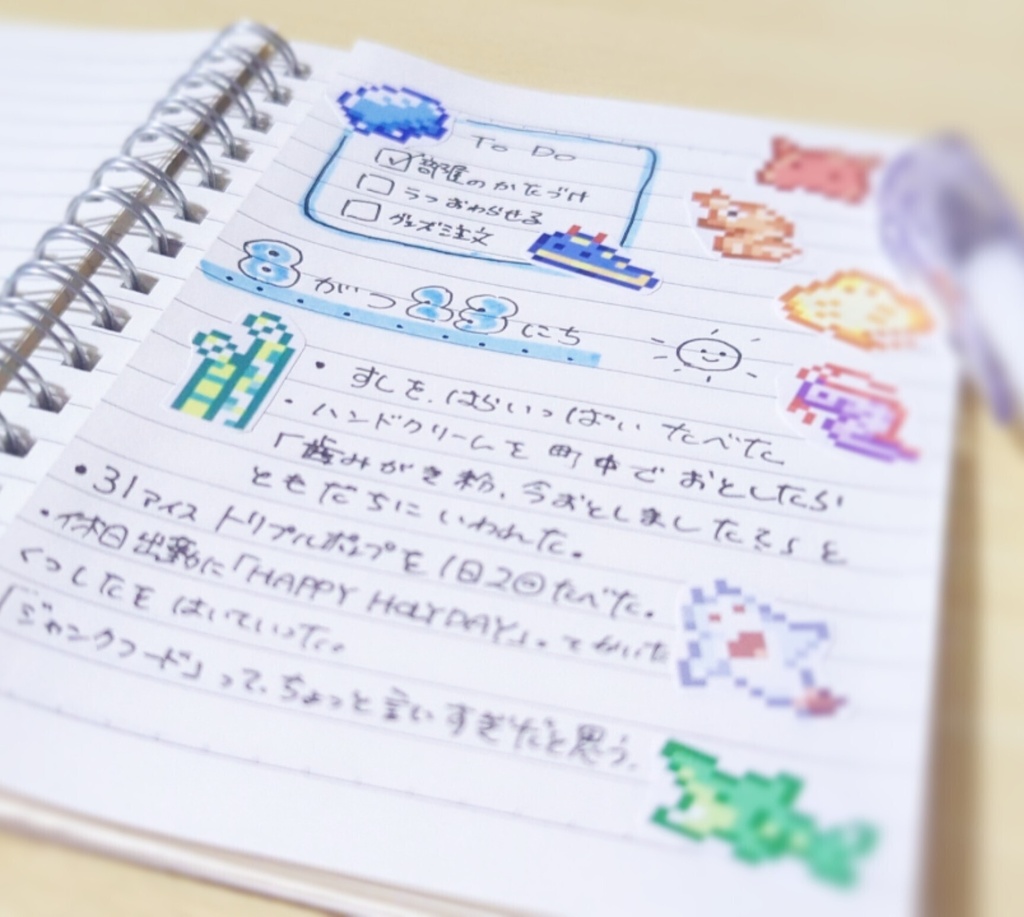 To Do
部屋のかたづけ
うつおわらせる
グッズ注文
8がつ23にち
・すしを、はらいっぱいたべた
・ハンドクリームを町中でおとしたら
「歯みがき粉、今おとしましたよ」と
ともだちにいわれた。
・31アイストリプルポップを1日2回たべた。
・休日出勤に「HAPPY HOLYDAY」。てかいた
くつしたをはいていった。
「ジャンクフード」って、ちょっと言いすぎだと思う。